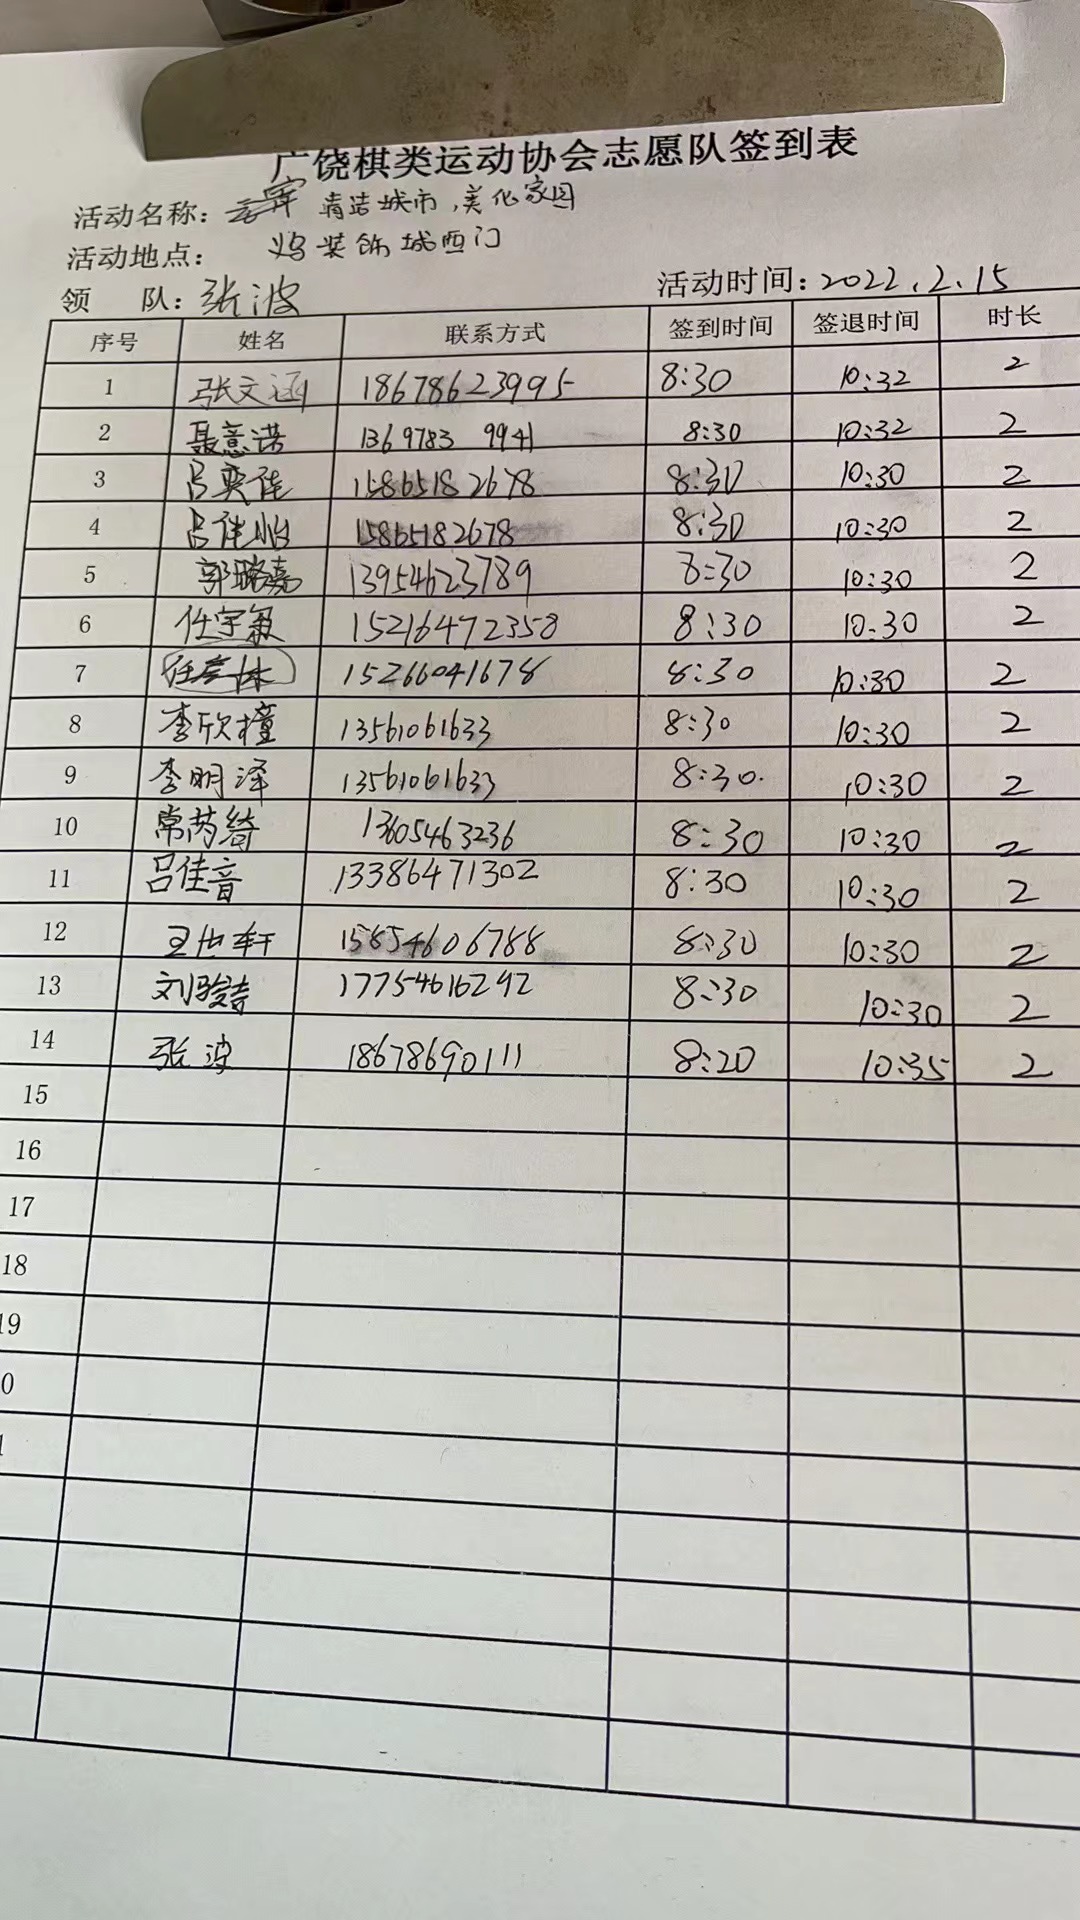 广饶棋类运动协会志愿队签到表
活动名称: 清洁城市,美化家园
活动地点: 义乌装饰城西门
领 队: 张波 活动时间: 2022.2.15
序号 姓名 联系方式 签到时间 签退时间 时长
1 张文涵 18678623995 8:30 10:32 2
2 聂意诺 13697839941 8:30 10:32 2
3 吕奕佳 15865182678 8:30 10:30 2
4 吕佳怡 15865182678 8:30 10:30 2
5 郭璐嘉 13954623789 8:30 10:30 2
6 任宇氦 15216472358 8:30 10:30 2
7 15266041678 8:30 10:30 2
8 李欣橦 13561061633 8:30 10:30 2
9 李明泽 13561061633 8:30 10:30 2
10 常芮绮 13605463236 8:30 10:30 2
11 吕佳音 13386471302 8:30 10:30 2
12 王也轩 15854606788 8:30 10:30 2
13 刘骏喆 17754616292 8:30 10:30 2
14 张波 18678690111 8:20 10:35 2
15
16
17
18
19
0
1